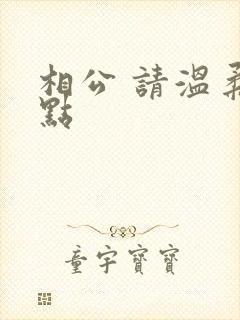 相公 請溫柔
點
童宇寶寶